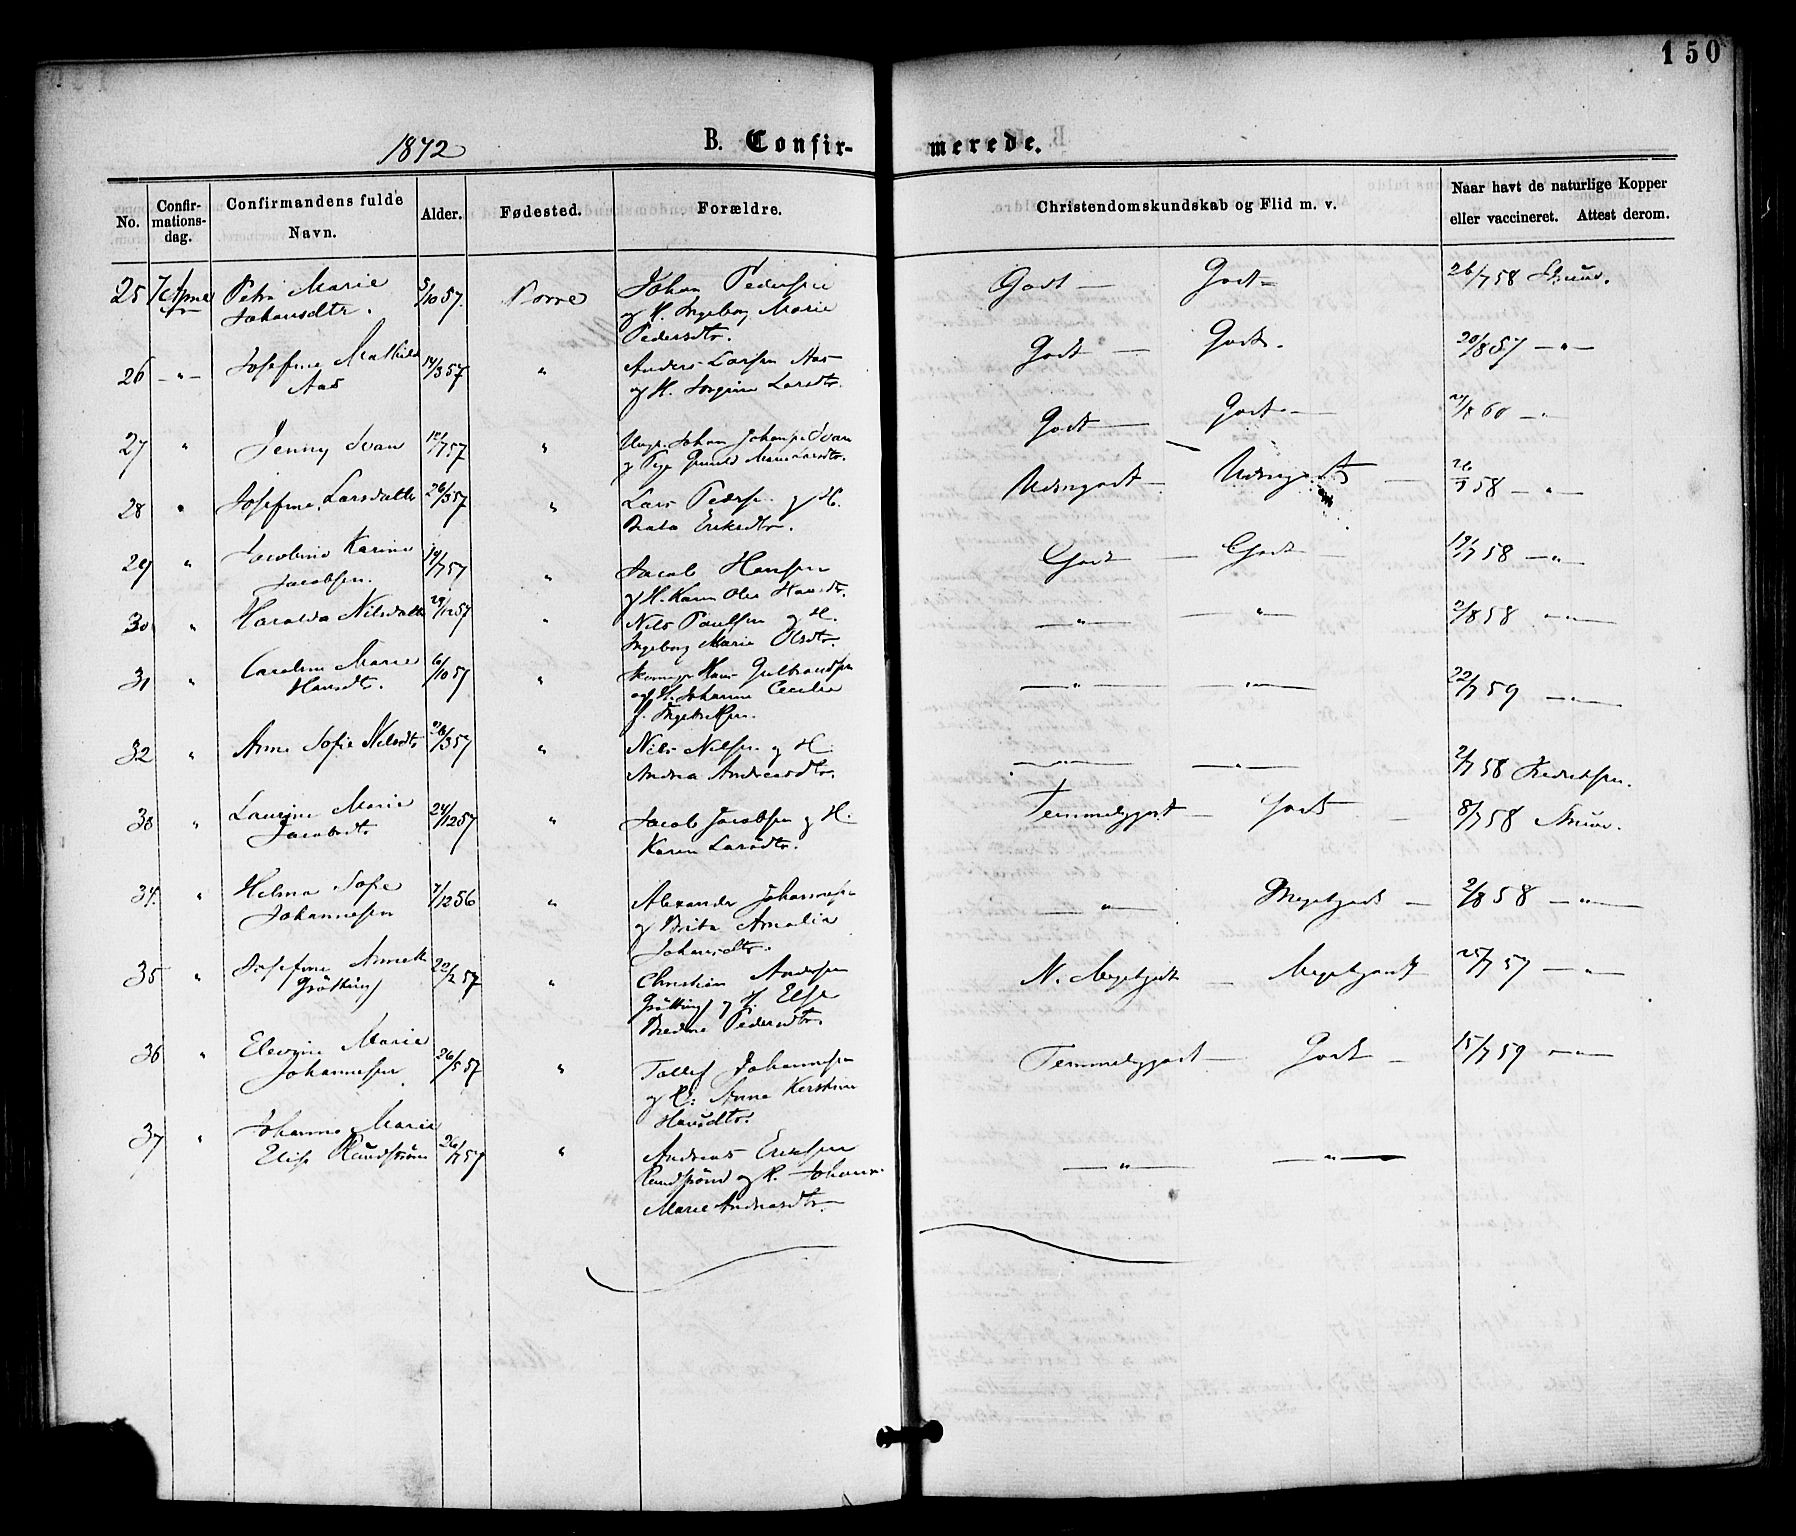 150
1872 B. Confir- merede.
No. Confir-mations-dag. Confirmandens fulde Navn. Alder. Fødested. Forældre. Christendomskundskab og Flid m. v. Naar havt de naturlige Kopper eller vaccineret. Attest derom.
25 7 Petra Marie 5/10 57. Johan Pedersen Godt — Godt 26/7 58
Johansdtr. og H. Ingeborg Marie
Pedersdtr.
26 — " — Josefine Mathilde 14/3 57 " Anders Larsen Aas Godt — Godt. 20/8 57 — " —
Aas og H. Larsdtr.
27 " Jenny Svan 12/7 57 " Johan Svan Godt — Godt — 60 — "
28 " Josefine Larsdatter 26/3 57 " Lars Peders. og H. Udmgodt — Udmgodt — 58 — " —
Beata Eriksdtr.
29 " Jacobine Karine 19/7 57 " Jacob Hansen Godt — Godt — 19/7 58 — " —
Jacobsen. og H. Karen Hansdtr.
30 " Haralda Nilsdatter 29/12 57 " Nils Paulsen og H. — " — — " — 2/8 58 — " —
Ingeborg Marie Olsdtr.
31 " Caroline Marie 6/10 57 " Hans Gulbrandsen — " — — " — 22/7 59 — " —
Hansdtr. og H. Johanne Cecilia
32 " Anne Sofie Nilsdtr 28/3 57 " Nils Nilsen og H. — " — — " — 2/7 58 Fredriksen.
Andrea Andreasdtr.
33 " Laurine Marie 24/12 57 " Jacob Jacobsen og H. Temmeliggodt — Godt — 8/7 58
Jacobsdtr Karen Larsdtr.
34. " Helma Sofie 7/12 56 " Alexander Johannesen — " — Megetgodt — 2/8 58 — " —
Johannesen og Brita Amalia
Johansdtr.
35 " Josefine Annette 22/2 57 " Christian Andersen N. Megetgodt — Megetgodt 25/7 57 — " —
Grötting Grötting og H. Else
Pedersdtr.
36 " Marie 26/5 57 " Tollef Johannesen Temmeliggodt — Godt — 15/7 59 — " —
Johannesen og H: Anne Kerstine
Hansdtr.
37 " Johanne Marie 26/7 57 " Andreas Eriksen — " — — " —
Elise Rundström og H. Johanne
Marie Andreasdtr.